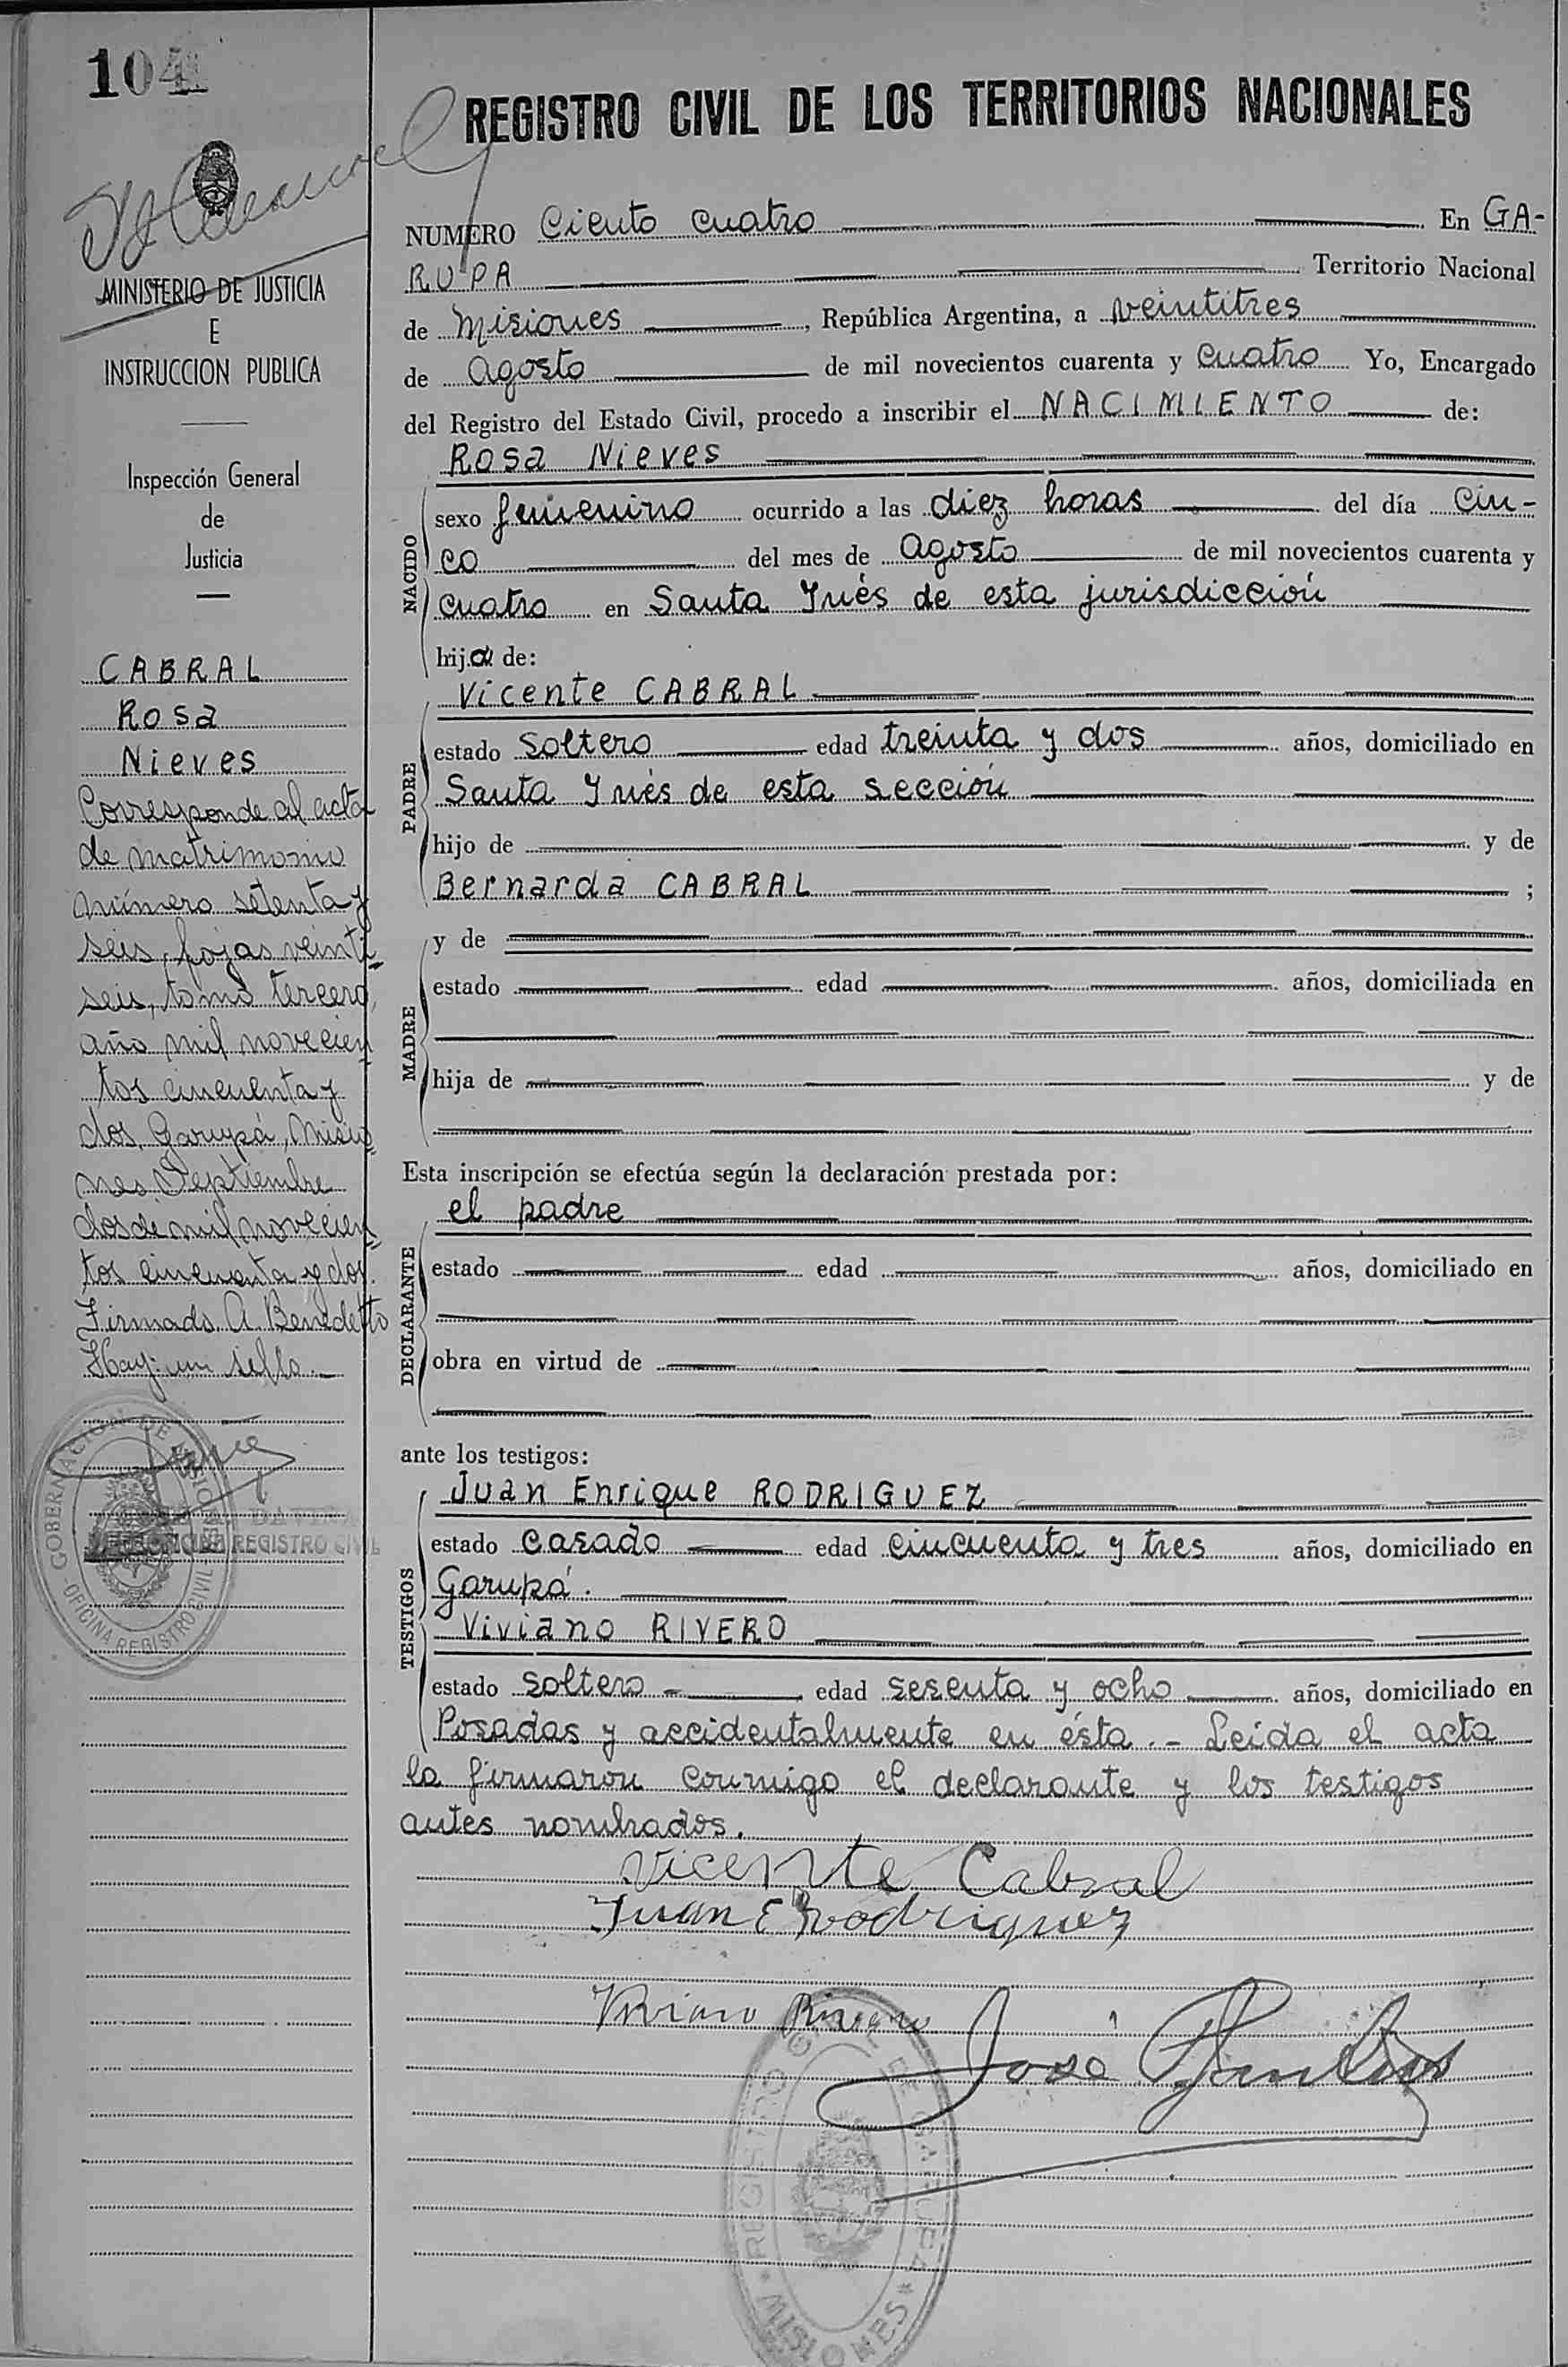 104
REGISTRO CIVIL DE LOS TERRITORIOS NACIONALES
MINISTERIO DE JUSTICIA
E
INSTRUCCION PUBLICA
Inspección General
de
Justicia
CABRAL
Rosa
Nieves
Corresponde al acta
de matrimonio
número setenta y
seis, fojas veinti
seis, tomo tercero,
año mil novecien
tos cincuenta y
dos, Garupá, Misio
nes Septiembre
dos de mil novecien
tos cincuenta y dos.
Firmado A. Benedetto
Hay: un sello.
GOBERNACION DE MISIONES
OFICINA REGISTRO CIVIL
REGISTRO CIVIL
NUMERO Ciento cuatro En GA-
RUPA Territorio Nacional
de Misiones, República Argentina, a veintitres
de Agosto de mil novecientos cuarenta y cuatro Yo, Encargado
del Registro del Estado Civil, procedo a inscribir el NACIMIENTO de:
Rosa Nieves
NACIDO
sexo femenino ocurrido a las diez horas del día cin-
co del mes de Agosto de mil novecientos cuarenta y
cuatro en Santa Ynés de esta jurisdicción
hija de:
Vicente CABRAL
PADRE
estado soltero edad treinta y dos años, domiciliado en
Santa Ynés de esta sección
hijo de y de
Bernarda CABRAL ;
MADRE
y de
estado edad años, domiciliada en
hija de y de
Esta inscripción se efectúa según la declaración prestada por:
el padre
DECLARANTE
estado edad años, domiciliado en
obra en virtud de
ante los testigos:
Juan Enrique RODRIGUEZ
TESTIGOS
estado casado edad cincuenta y tres años, domiciliado en
Garupá.
Viviano RIVERO
estado soltero edad sesenta y ocho años, domiciliado en
Posadas y accidentalmente en ésta.- Leída el acta
la firmaron conmigo el declarante y los testigos
antes nombrados.
Vicente Cabral
Juan E Rodriguez
Viviano Rivero
José
REGISTRO
MISIONES